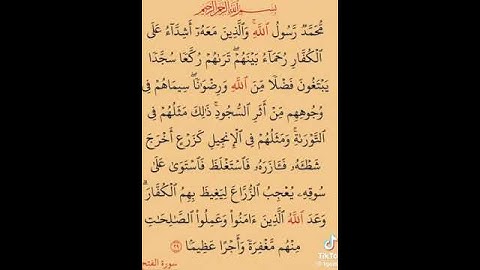 بسم الله الرحمن الرحيم
مُّحَمَّدٌ رَّسُولُ ٱللَّهِۚ وَٱلَّذِينَ مَعَهُۥٓ أَشِدَّآءُ عَلَى
ٱلْكُفَّارِ رُحَمَآءُ بَيْنَهُمْۖ تَرَىٰهُمْ رُكَّعًا سُجَّدًا
يَبْتَغُونَ فَضْلًا مِّنَ ٱللَّهِ وَرِضْوَٰنًاۖ سِيمَاهُمْ فِى
وُجُوهِهِم مِّنْ أَثَرِ ٱلسُّجُودِۚ ذَٰلِكَ مَثَلُهُمْ فِى
ٱلتَّوْرَىٰةِۚ وَمَثَلُهُمْ فِى ٱلْإِنجِيلِ كَزَرْعٍ أَخْرَجَ
شَطْـَٔهُۥ فَـَٔازَرَهُۥ فَٱسْتَغْلَظَ فَٱسْتَوَىٰ عَلَىٰ
سُوقِهِۦ يُعْجِبُ ٱلزُّرَّاعَ لِيَغِيظَ بِهِمُ ٱلْكُفَّارَۗ
وَعَدَ ٱللَّهُ ٱلَّذِينَ ءَامَنُوا۟ وَعَمِلُوا۟ ٱلصَّٰلِحَٰتِ
مِنْهُم مَّغْفِرَةً وَأَجْرًا عَظِيمًۢا ٢٩
سورة الفتح
TikTo